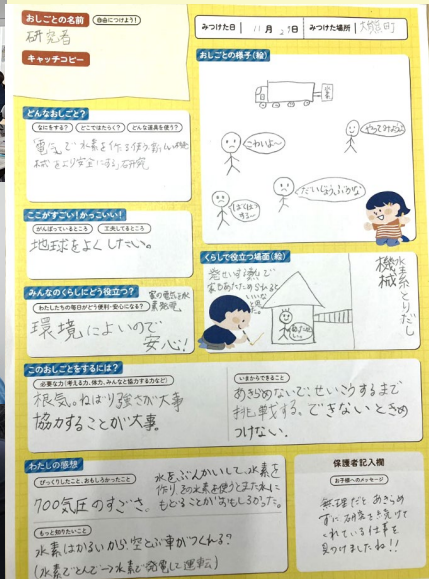 おしごとの名前
自由につけよう!
研究者
みつけた日
11月27日
みつけた場所
大熊町
キャッチコピー
おしごとの様子(絵)
水素
こわいよ〜
やってみよう
ばくはつする〜
だいじょうぶかな
どんなおしごと?
なにをする?
どこではたらく?
どんな道具を使う?
「電気」で水素を作る
機械をより安全にする研究
ここがすごい!かっこいい!
がんばっているところ
工夫してるところ
地球をよくしたい。
みんなのくらしにどう役立つ?
わたしたちの毎日がどう便利・安心になる?
家の電気を水素発電
環境によいので
安心!
くらしで役立つ場面(絵)
発せいする熱で
家をあたためられると
いいなと思った。
水素とりだし
機械
このおしごとをするには?
必要な力(考える力、体力、みんなと協力する力など)
根気。ねばり強さが大事
協力することが大事。
いまからできること
あきらめないで、せいこうするまで
挑戦する。できないときめ
つけない。
わたしの感想
びっくりしたこと、おもしろかったこと
700気圧のすごさ。
水を、ぶんかいして、水素を
作り、その水素を使うとまた水に
もどることがおもしろかった。
もっと知りたいこと
水素はかるいから空とぶ車がつくれる?
(水素でとんで→水素で発電して運転)
保護者記入欄
お子様へのメッセージ
無理だとあきらめ
ずに研究を続けて
くれている仕事を
見つけましたね!!